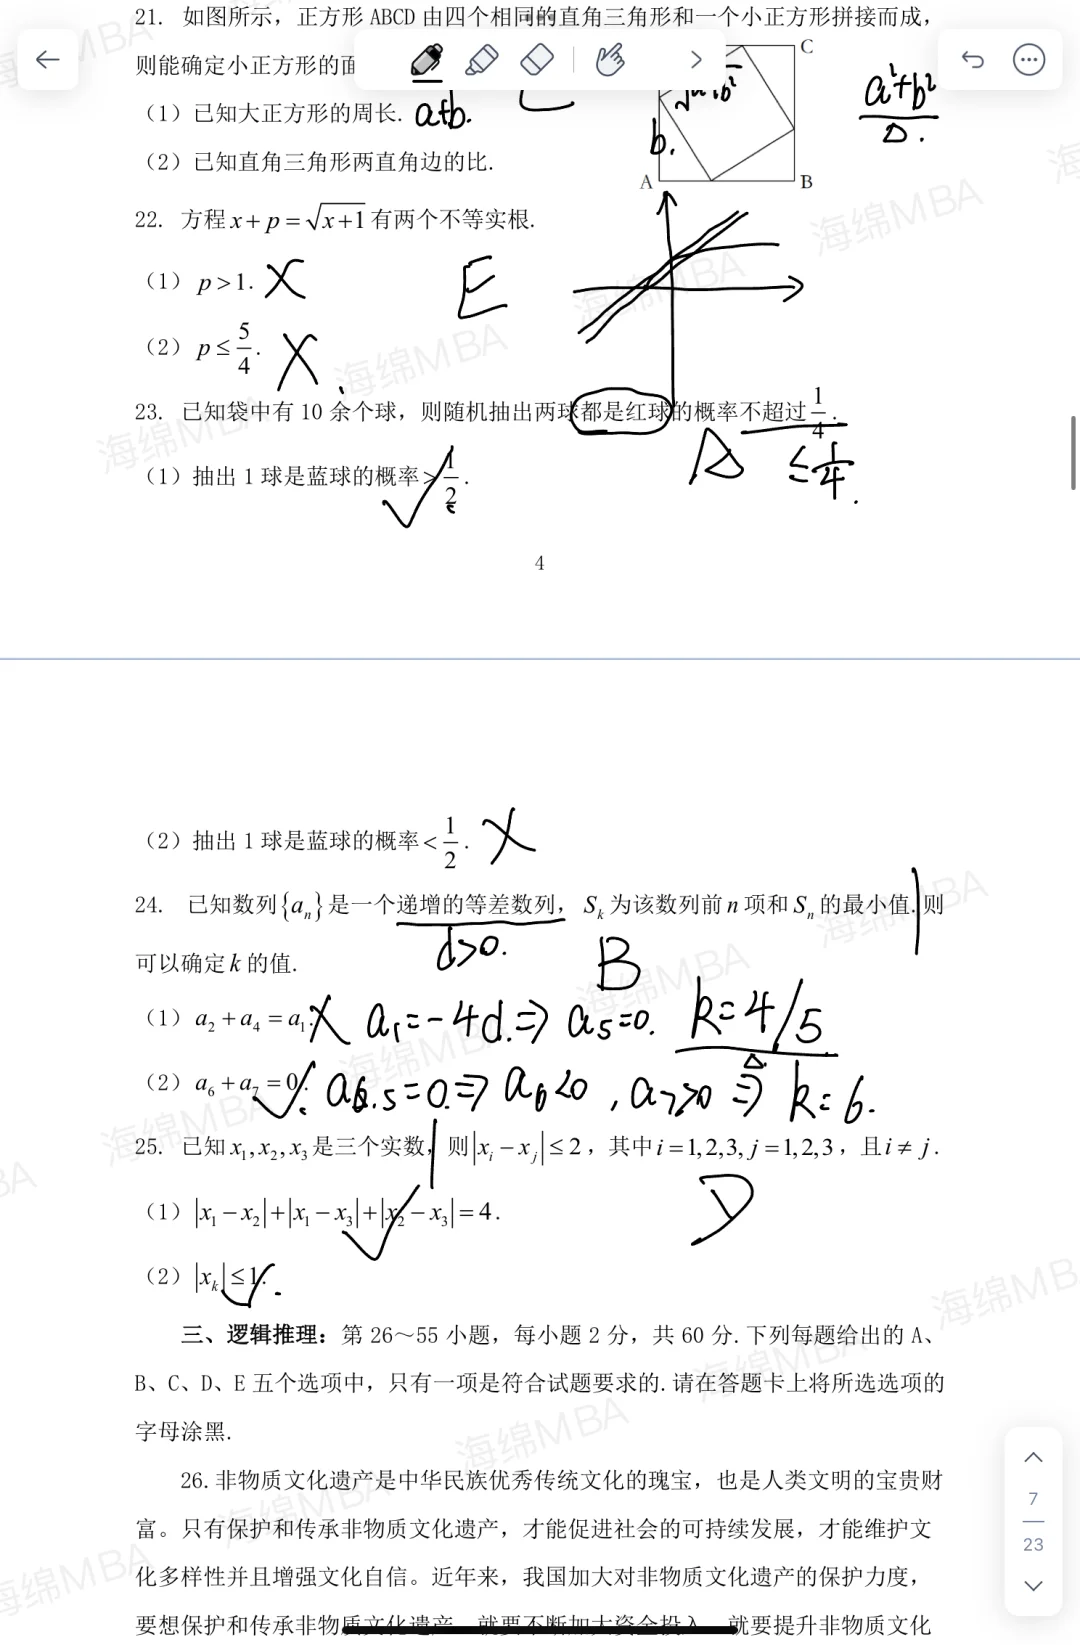 21. 如图所示，正方形 ABCD 由四个相同的直角三角形和一个小正方形拼接而成，
则能确定小正方形的面
C
a²+b²
Δ.
(1) 已知大正方形的周长. a+b.
b.
(2) 已知直角三角形两直角边的比.
A B
22. 方程 x+p=√(x+1) 有两个不等实根.
(1) p>1. X E
(2) p≤5/4. X
23. 已知袋中有 10 余个球，则随机抽出两球都是红球的概率不超过 1/4.
(1) 抽出 1 球是蓝球的概率>1/2. ✓ A ≤1/4.
4
(2) 抽出 1 球是蓝球的概率<1/2. X
24. 已知数列{aₙ}是一个递增的等差数列，Sₖ为该数列前 n 项和 Sₙ 的最小值.则
可以确定 k 的值. d>0. B
(1) a₂+a₄=a₁. X a₁=-4d.⇒ a₅=0. k=4/5
(2) a₆+a₇=0. ✓ a₆.₅=0.⇒ a₆<0, a₇>0 ⇒ k=6.
25. 已知 x₁,x₂,x₃ 是三个实数，则|xᵢ-xⱼ|≤2，其中 i=1,2,3, j=1,2,3，且 i≠j.
(1) |x₁-x₂|+|x₁-x₃|+|x₂-x₃|=4. ✓ D
(2) |xₖ|≤1. ✓
三、逻辑推理：第 26～55 小题，每小题 2 分，共 60 分.下列每题给出的 A、
B、C、D、E 五个选项中，只有一项是符合试题要求的.请在答题卡上将所选选项的
字母涂黑.
26.非物质文化遗产是中华民族优秀传统文化的瑰宝，也是人类文明的宝贵财
富。只有保护和传承非物质文化遗产，才能促进社会的可持续发展，才能维护文
化多样性并且增强文化自信。近年来，我国加大对非物质文化遗产的保护力度，
要想保护和传承非物质文化遗产，就要不断加大资金投入，就要提升非物质文化
7
23
海绵MBA